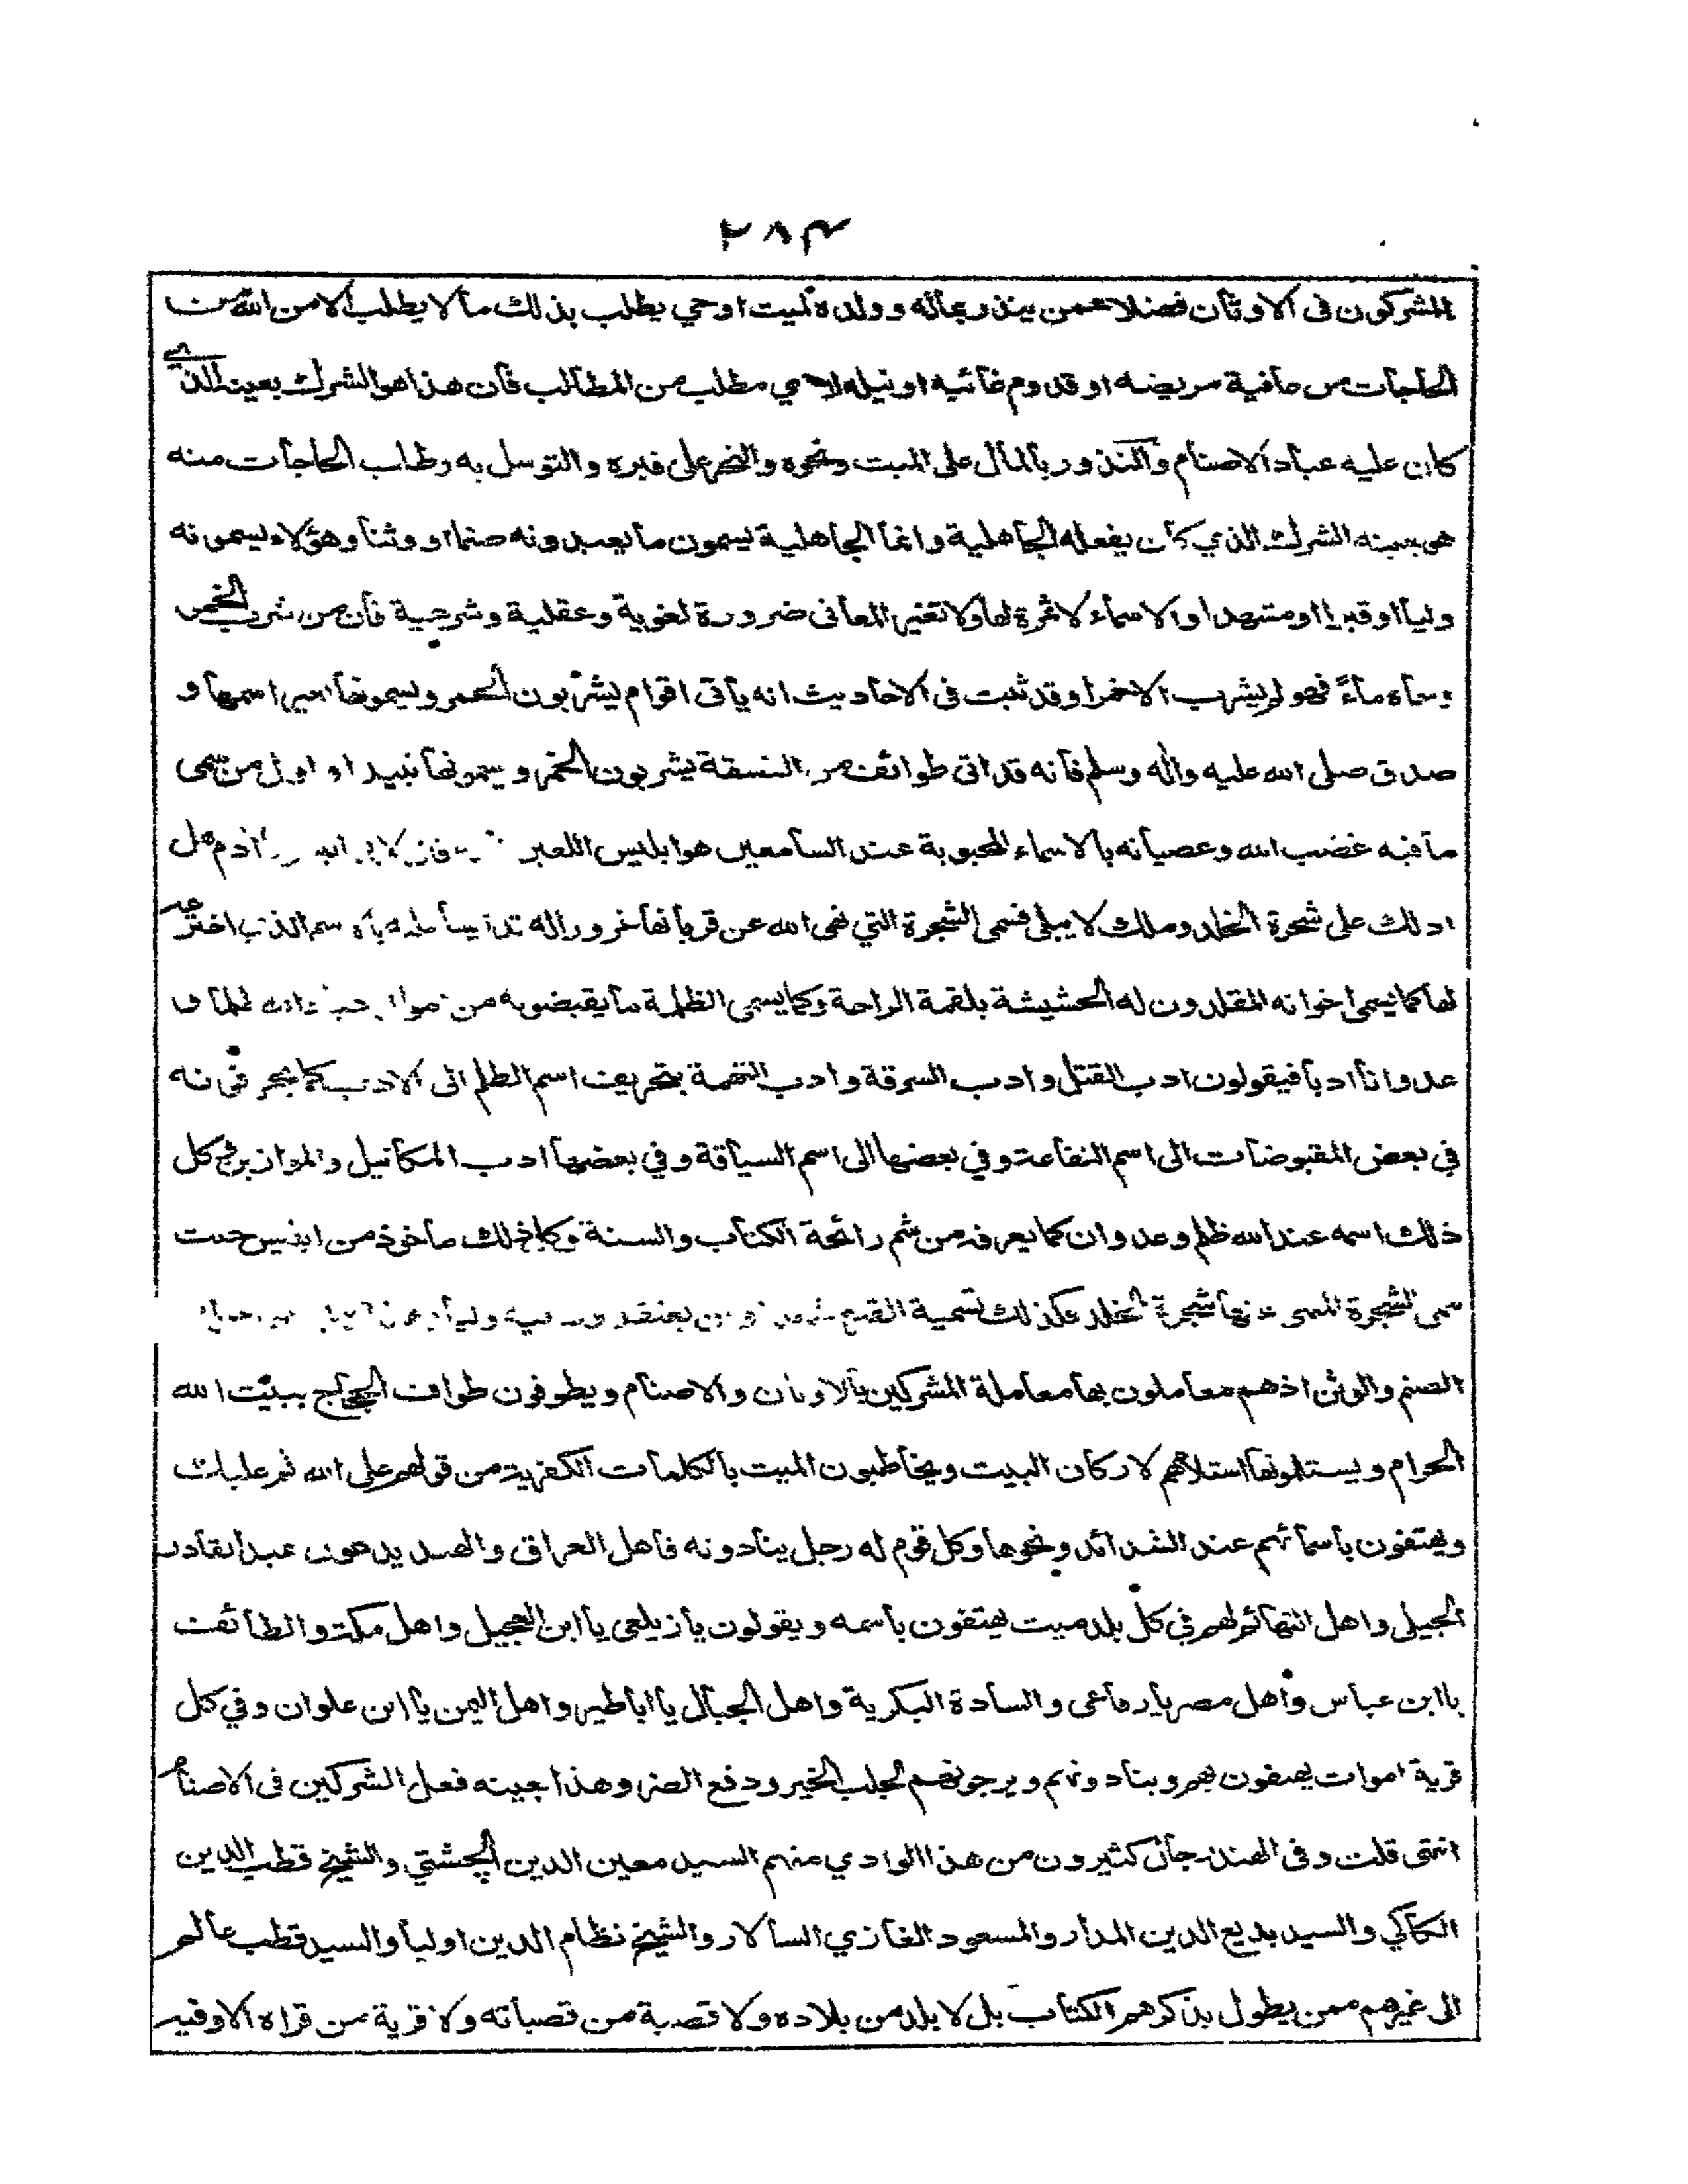 ٢٨٣
المشركون فى الاوثان فضلا عمن ينذر بماله وولده لميت اوحي يطلب بذلك مالا يطلب الا من الله من
الحاجات من عافية مريضه او قدوم غائبه او نيله لاي مطلب من المطالب فان هذا هو الشرك بعينه الذي
كان عليه عباد الاصنام والنذور بالمال على الميت ونحوه والنحر على قبره والتوسل به وطلب الحاجات منه
هى بعينه الشرك الذي كان يفعله الجاهلية وانما الجاهلية يسمون ما يعبدونه صنما او وثنا وهؤلاء يسمونه
وليا او قبرا او مشهدا والاسماء لا ثمرة لها ولا تغير المعانى ضرورة لغوية وعقلية وشرعية فان من شرب الخمر
وسماه ماءً فهو لم يشرب الا خمرا وقد ثبت فى الاحاديث انه يأتى اقوام يشربون الخمر ويسمونها بغير اسمها و
صدق صلى الله عليه واله وسلم فانه قد اتى طوائف من الفسقة يشربون الخمر ويسمونها نبيذا واول من سمى
ما فيه غضب الله وعصيانه بالاسماء المحبوبة عند السامعين هو ابليس اللعين فانه قال لابى البشر ادم هل
ادلك على شجرة الخلد وملك لا يبلى فسمى الشجرة التي نهى الله عن قربانها غرورا له بالاسم الذي اخترعه
لها كما يسمى اخوانه المقلدون له الحشيشة بلقمة الراحة وكما يسمى الظلمة ما يقبضونه من اموال عباد الله ظلما و
عدوانا ادبا فيقولون ادب القتل وادب السرقة وادب التهمة بتحريف اسم الظلم الى الادب كما يحرفونه
في بعض المقبوضات الى اسم النفاعة وفي بعضها الى اسم السياقة وفي بعضها ادب المكائيل والموازين وكل
ذلك اسمه عند الله ظلم وعدوان كما يعرفه من شم رائحة الكتاب والسنة وكل ذلك ماخوذ من ابليس حيث
سمى الشجرة المنهى عنها شجرة الخلد وكذلك تسمية القبر مشهدا ومن يعتقدون فيه وليا
الصنم والوثن اذ هم معاملون بها معاملة المشركين بالاوثان والاصنام ويطوفون طواف الحجاج ببيت الله
الحرام ويستلمونها استلامهم لاركان البيت ويخاطبون الميت بالكلمات الكفرية من قولهم على الله ثم عليك
ويهتفون باسمائهم عند الشدائد ونحوها وكل قوم له رجل ينادونه فاهل العراق والهند يدعون عبد القادر
الجيلى واهل التهائم لهم في كل بلد ميت يهتفون باسمه ويقولون يا زيلعى يا ابن العجيل واهل مكة والطائف
يا ابن عباس واهل مصر يا رفاعى والسادة البكرية واهل الجبال يا ابا طير واهل اليمن يا ابن علوان وفي كل
قرية اموات يهتفون بهم وينادونهم ويرجونهم لجلب الخير ودفع الضر وهذا بعينه فعل المشركين فى الاصنام
انتهى قلت وفى الهند رجال كثيرون من هذا الوادي منهم السيد معين الدين الچشتي والشيخ قطب الدين
الكاكي والسيد بديع الدين المدار والمسعود الغازي السالار والشيخ نظام الدين اوليا والسيد قطب عالم
الى غيرهم ممن يطول بذكرهم الكتاب بل لا بلد من بلاده ولا قصبة من قصباته ولا قرية من قراه الا وفيه